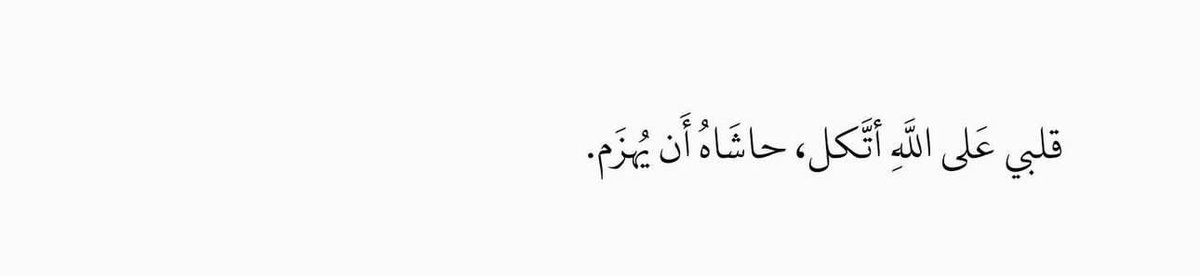 قلبي عَلى اللَّهِ أتَّكل، حاشَاهُ أَن يُهزَم.